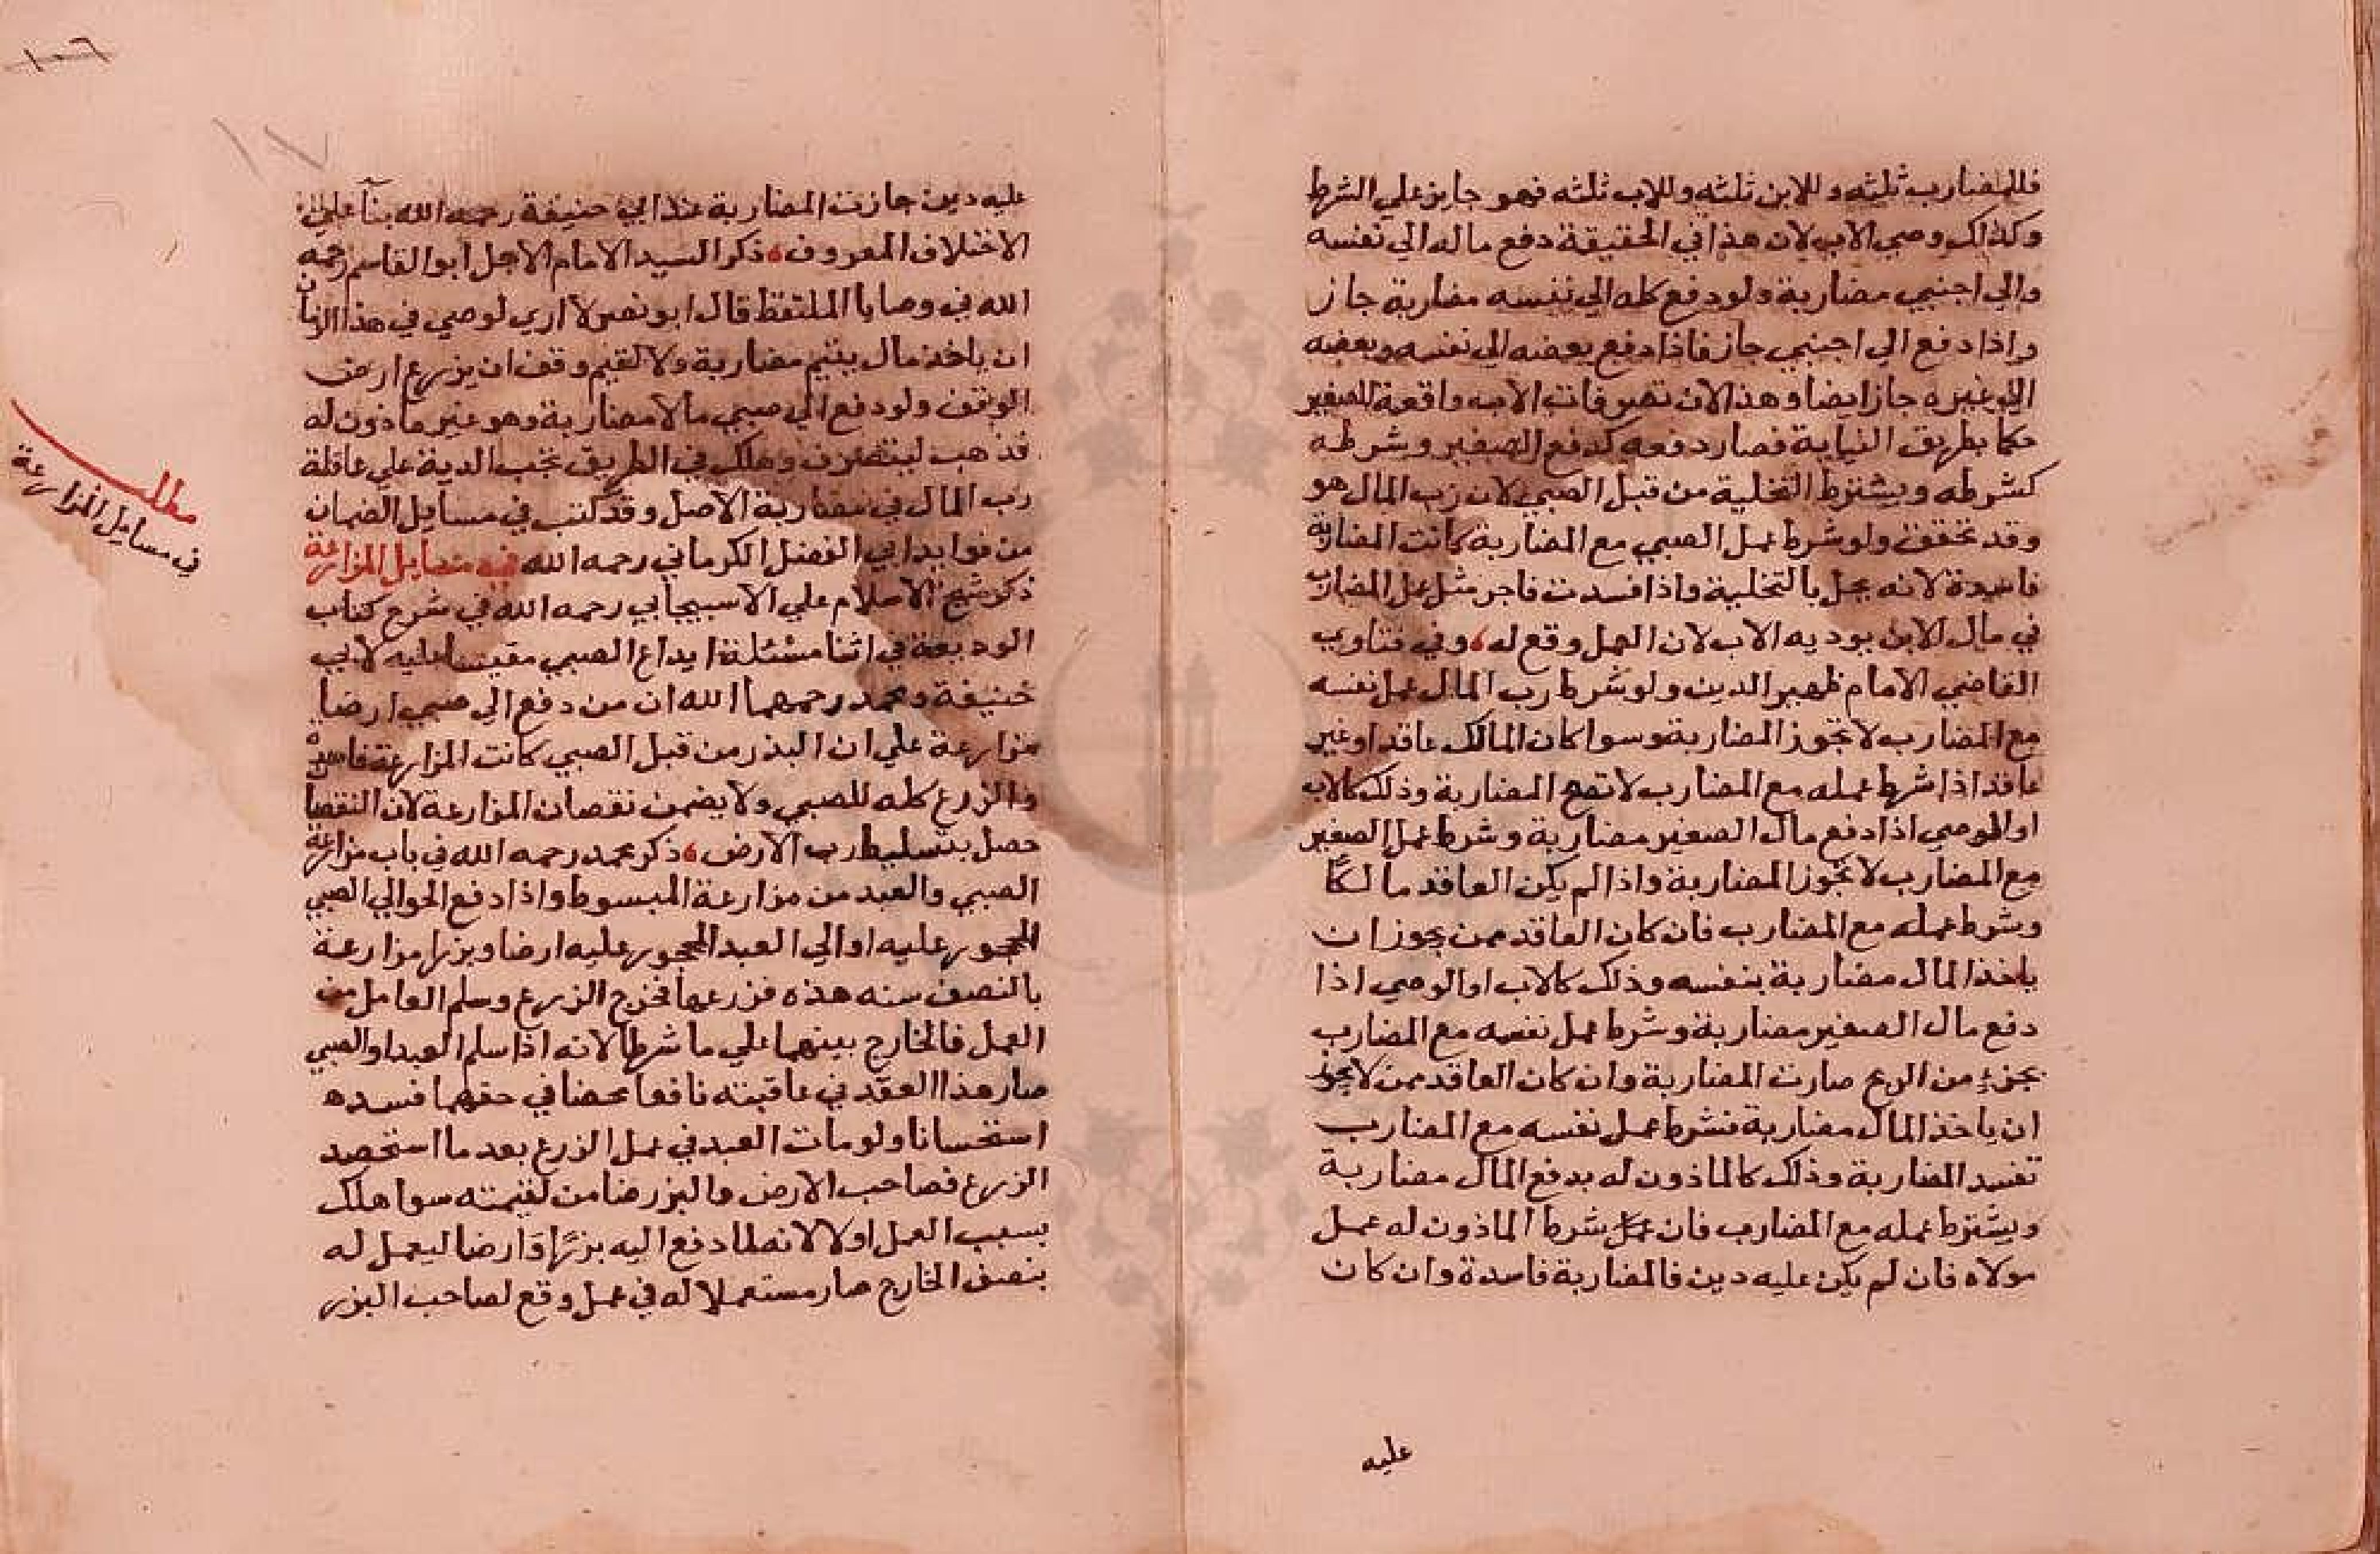 فللمضارب ثلثه وللابن ثلثه وللاب ثلثه فهو جايز علي الشرط
وكذلك وصي الاب لان هذا في الحقيقة دفع ماله الي نفسه
والي اجنبي مضاربة ولو دفع كله الي نفسه مضاربة جاز
واذا دفع الي اجنبي جاز فاذا دفع بعضه الي نفسه وبعضه
الي غيره جاز ايضا وهذا لان تصرفات الاب واقعة للصغير
حكما بطريق النيابة فصار دفعه كدفع الصغير وشرطه
كشرطه ويشترط التخلية من قبل الصبي لان رب المال هو
وقد تحققت ولو شرط عمل الصبي مع المضاربة كانت المضاربة
فاسدة لانه يخل بالتخلية واذا فسدت فاجر مثل عمل المضارب
في مال الابن يوديه الاب لان العمل وقع له وفي فتاوي
القاضي الامام ظهير الدين ولو شرط رب المال عمل نفسه
مع المضارب لا تجوز المضاربة وسوا كان المالك عاقدا وغير
عاقد اذا شرط عمله مع المضارب لا تصح المضاربة وذلك كالاب
او الوصي اذا دفع مال الصغير مضاربة وشرط عمل الصغير
مع المضارب لا تجوز المضاربة واذا لم يكن العاقد مالكًا
وشرط عمله مع المضارب فان كان العاقد ممن يجوز ان
ياخذ المال مضاربة بنفسه وذلك كالاب او الوصي اذا
دفع مال الصغير مضاربة وشرط عمل نفسه مع المضارب
بجزء من الربح صارت المضاربة وان كان العاقد ممن لا يجوز
ان ياخذ المال مضاربة فشرط عمل نفسه مع المضارب
تفسد المضاربة وذلك كالماذون له يدفع المال مضاربة
ويشترط عمله مع المضارب فان شرط الماذون له عمل
مولاه فان لم يكن عليه دين فالمضاربة فاسدة وان كان
عليه
عليه دين جازت المضاربة عند ابي حنيفة رحمه الله بنآ علي
الاختلاف المعروف ذكر السيد الامام الاجل ابو القاسم رحمه
الله في وصايا الملتقط قال ابو نصر لا اري لوصي في هذا الزمان
ان ياخذ مال يتيم مضاربة ولا لقيم وقف ان يزرع ارض
الوقف ولو دفع الي صبي مالا مضاربة وهو غير ماذون له
فذهب ليتصرف وهلك في الطريق تجب الدية علي عاقلة
رب المال في مضاربة الاصل وقد كتب في مسايل الضمان
من فوايد ابي الفضل الكرماني رحمه الله في مسايل المزارعة
ذكر شيخ الاسلام علي الاسبيجابي رحمه الله في شرح كتاب
الوديعة في اثنا مسئلة ايداع الصبي مقيسا عليه لابي
حنيفة ومحمد رحمهما الله ان من دفع الي صبي ارضا
مزارعة علي ان البذر من قبل الصبي كانت المزارعة فاسدة
والزرع كله للصبي ولا يضمن نقصان المزارعة لان النقصان
حصل بتسليط رب الارض ذكر محمد رحمه الله في باب مزارعة
الصبي والعبد من مزارعة المبسوط واذا دفع الحر الي الصبي
المحجور عليه او الي العبد المحجور عليه ارضا وبزرا مزارعة
بالنصف سنه هذه فزرعها فخرج الزرع وسلم العامل من
العمل فالخارج بينهما علي ما شرطا لانه اذا سلم العبد او الصبي
صار هذا العقد في عاقبته نافعا محضا في حقهما فسده
استحسانا ولو مات العبد في عمل الزرع بعد ما استحصد
الزرع فصاحب الارض والبزر ضامن لقيمته سوا هلك
بسبب العمل او لا لانه لما دفع اليه بزرًا وارضا ليعمل له
بنصف الخارج صار مستعملا له في عمل وقع لصاحب البزر
مطلب
في مسايل المزارعة